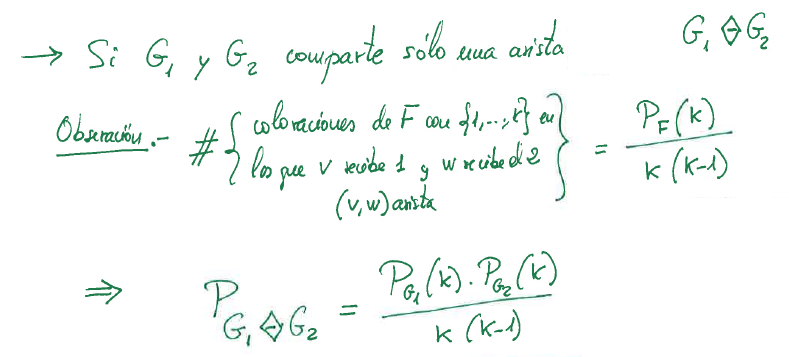 → Si G₁ y G₂ comparte sólo una arista G₁ ⟠ G₂
Observación.- # { coloraciones de F con {1,..,k} en
los que v recibe 1 y w recibe el 2
(v,w) arista } = P_F(k) / k(k-1)
⇒ P_{G₁ ⟠ G₂} = P_{G₁}(k) · P_{G₂}(k) / k(k-1)